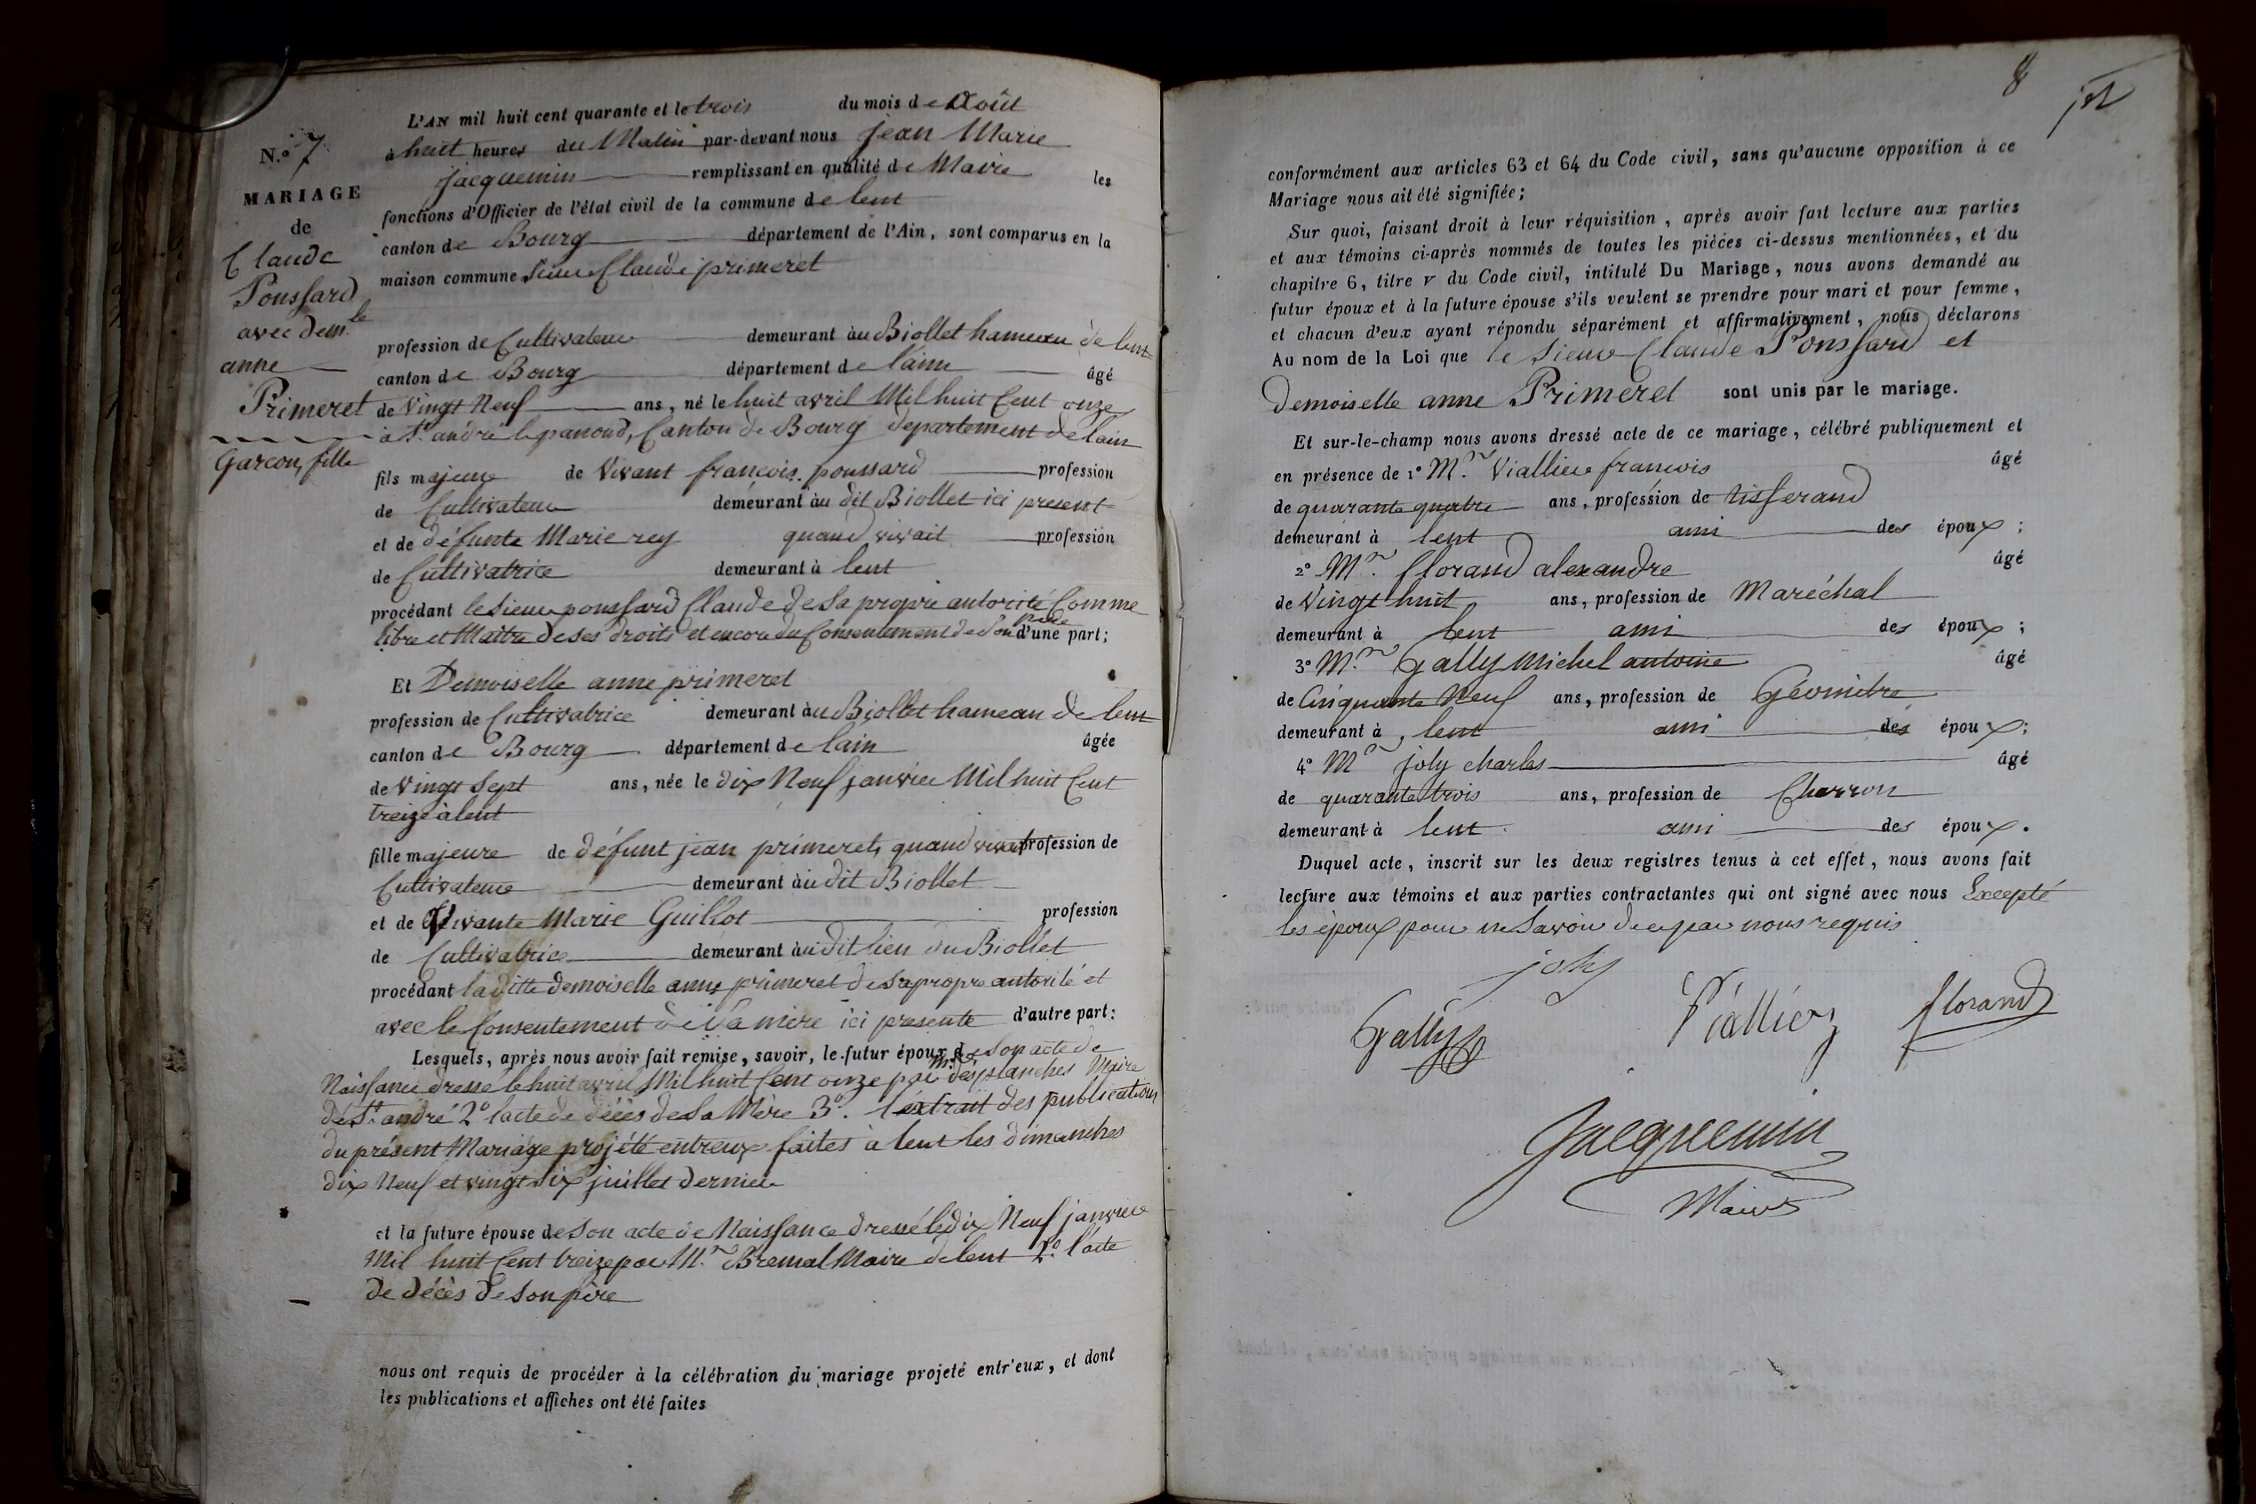 N.º 7
MARIAGE
de
Claude
Poussard
avec demlle
anne
Primeret
Garçon, fille
L'AN mil huit cent quarante et le trois du mois de Août
à huit heures du Matin par-devant nous Jean Marie
Jacquemin remplissant en qualité de Maire les
fonctions d'Officier de l'état civil de la commune de lent
canton de Bourg département de l'Ain, sont comparus en la
maison commune Sieur Claude primeret
profession de Cultivateur demeurant au Biollet hameau de lent
canton de Bourg département de l'ain âgé
de Vingt Neuf ans, né le huit avril Mil huit Cent onze
à St. andré le panoud, Canton de Bourg département de lain
fils majeur de Vivant françois poussard profession
de Cultivateur demeurant au dit Biollet ici present
et de défunte Marie rey quand vivait profession
de Cultivatrice demeurant à lent
procédant le Sieur poussard Claude de Sa propre autorité Comme
libre et Maître de ses droits et encore du Consentement de Son père d'une part;
Et Demoiselle anne primeret
profession de Cultivatrice demeurant au Biollet hameau de lent
canton de Bourg département de lain âgée
de Vingt Sept ans, née le dix Neuf janvier Mil huit Cent
treize à lent
fille majeure de défunt jean primeret, quand vivait profession de
Cultivateur demeurant au dit Biollet
et de Vivante Marie Guillot profession
de Cultivatrice demeurant au dit lieu du Biollet
procédant la ditte demoiselle anne primeret de sa propre autorité et
avec le Consentement de Sa mère ici presente d'autre part:
Lesquels, après nous avoir fait remise, savoir, le futur époux de son acte de
Naissance dressé le huit avril Mil huit Cent onze par Mr. desplanches Maire
de St. andré 2º l'acte de décès de Sa Mère 3º. l'extrait des publications
du présent Mariage projété entreux faites à lent les dimanches
dix Neuf et vingt six juillet dernier
et la future épouse de Son acte de Naissance dressé le dix Neuf janvier
Mil huit Cent treize par Mr. Bremal Maire de lent 2º l'acte
de décès de Son père
nous ont requis de procéder à la célébration du mariage projeté entr'eux, et dont
les publications et affiches ont été faites
8
conformément aux articles 63 et 64 du Code civil, sans qu'aucune opposition à ce
Mariage nous ait été signifiée;
Sur quoi, faisant droit à leur réquisition, après avoir fait lecture aux parties
et aux témoins ci-après nommés de toutes les pièces ci-dessus mentionnées, et du
chapitre 6, titre v du Code civil, intitulé Du Mariage, nous avons demandé au
futur époux et à la future épouse s'ils veulent se prendre pour mari et pour femme,
et chacun d'eux ayant répondu séparément et affirmativement, nous déclarons
Au nom de la Loi que le Sieur Claude Poussard et
demoiselle anne Primeret sont unis par le mariage.
Et sur-le-champ nous avons dressé acte de ce mariage, célébré publiquement et
en présence de 1º Mr. Viallier françois âgé
de quarante quatre ans, profession de tisserand
demeurant à lent ami des époux;
2º Mr. florand alexandre âgé
de Vingt huit ans, profession de Maréchal
demeurant à lent ami des époux;
3º Mr. Gally Michel antoine âgé
de Cinquante Neuf ans, profession de Géomètre
demeurant à lent ami des époux;
4º Mr joly charles âgé
de quarante trois ans, profession de Charron
demeurant à lent ami des époux.
Duquel acte, inscrit sur les deux registres tenus à cet effet, nous avons fait
lecture aux témoins et aux parties contractantes qui ont signé avec nous Excepté
les époux pour ne Savoir de ce par nous requis
joly
Gally Viallier florand
Jacquemin
Maire